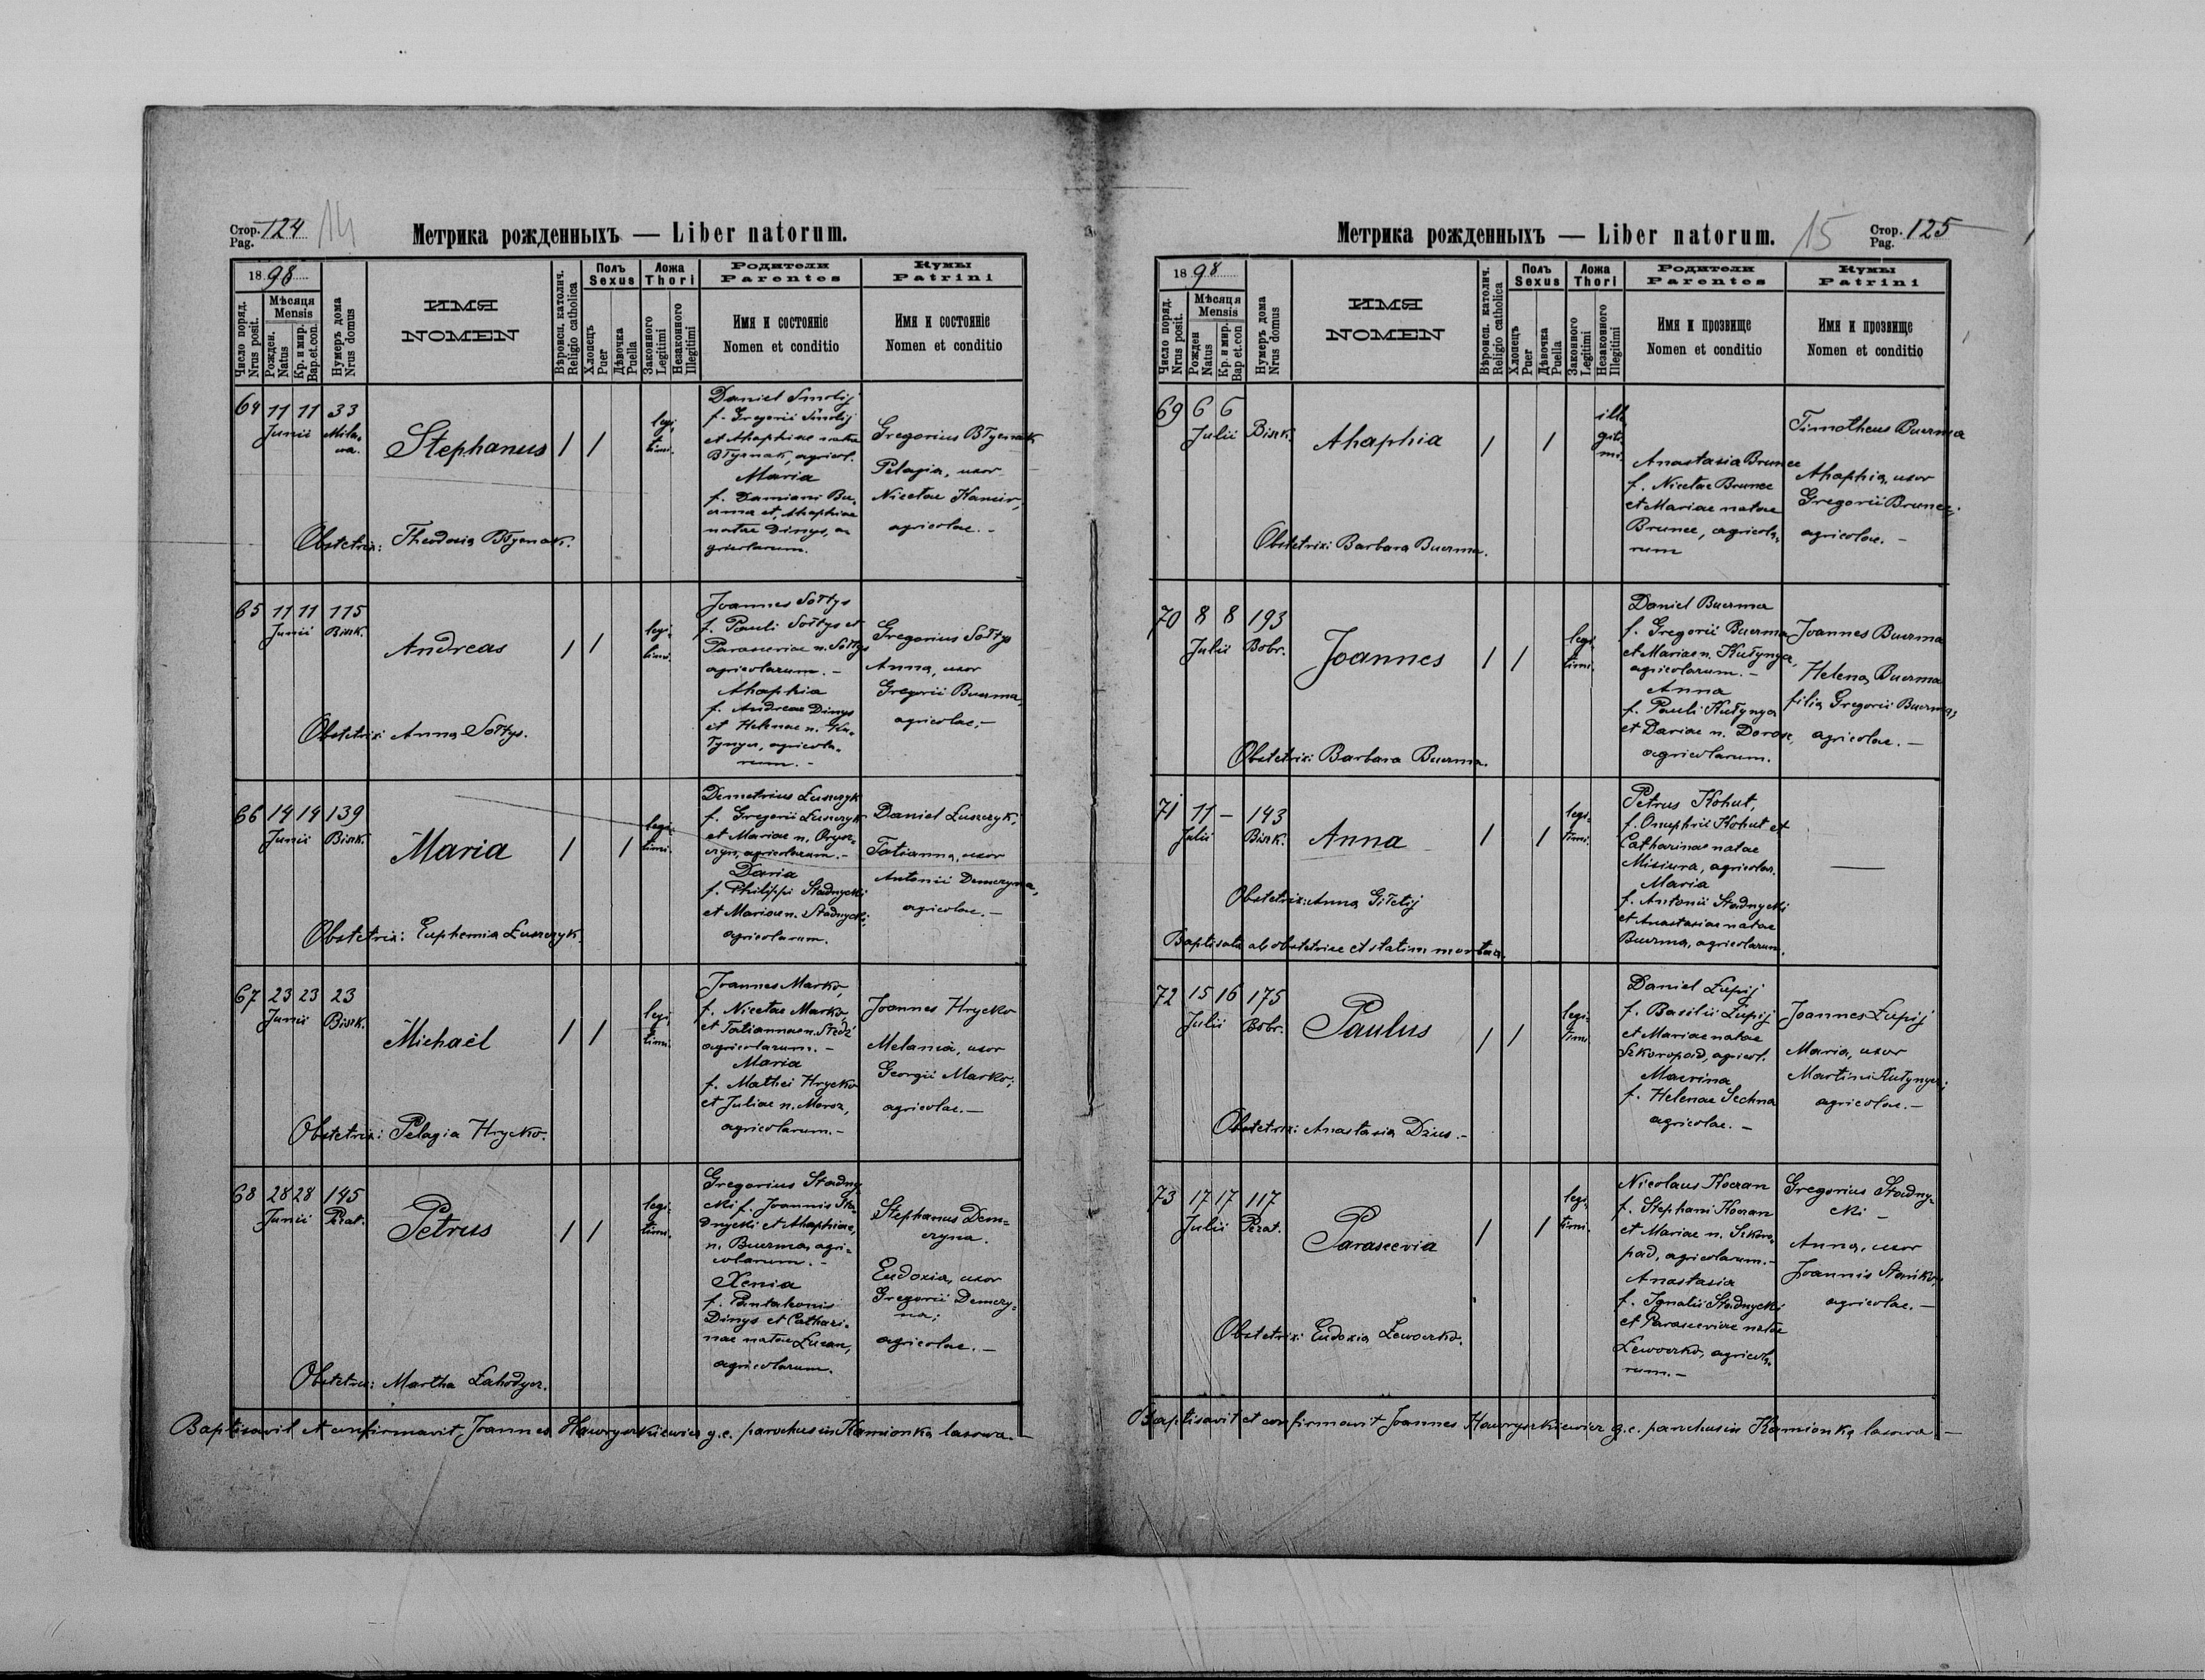 Стор. Pag. 124 14
Метрика рожденныхъ — Liber natorum.
1898
Число поряд. Nrus posit.
Мѣсяця Mensis
Рожден. Natus
Кр. и мир. Bap. et con.
Нумеръ дома Nrus domus
ИМЯ
NOMEN
Вѣроисп. католич. Religio catholica
Полъ Sexus
Хлопецъ Puer
Дѣвочка Puella
Ложа Thori
Законного Legitimi
Незаконного Illegitimi
Родители
Parentes
Имя и состояніе
Nomen et conditio
Кумы
Patrini
Имя и состояніе
Nomen et conditio
64 11 11 33
Junii Mila-
wa.
Stephanus / /
legi-
timi.
Daniel Smolij
f. Gregorii Smolij
et Ahaphiae natae
Błyznak, agricol.
Maria
f. Damiani Bu-
erma et Ahaphiae
natae Dinys, a-
gricolarum.
Gregorius Błyznak
Pelagia, uxor
Nicetae
agricolae. -
Obstetrix: Theodosia Błyznak.
65 11 11 115
Junii Bisk.
Andreas / /
legi-
timi.
Joannes Sołtys
f. Pauli Sołtys et
Parasceviae n. Sołtys
agricolarum. -
Ahaphia
f. Andreae Dinys
et Helenae n. Ku-
łynycz, agricola-
rum. -
Gregorius Sołtys
Anna, uxor
Gregorii Buerma,
agricolae. -
Obstetrix: Anna Sołtys.
66 14 14 139
Junii Bisk.
Maria / /
legi-
timi.
Demetrius Łuszczyk
f. Gregorii Łuszczyk
et Mariae n.
agricolarum. -
Daria
f. Philippi Stadnycki
et Mariae n. Stadnycki,
agricolarum.
Daniel Łuszczyk,
Tatianna, uxor
Antonii Demczyna,
agricolae. -
Obstetrix: Euphemia Łuszczyk.
67 23 23 23
Junii Bisk.
Michaël / /
legi-
timi.
Joannes Marko,
f. Nicetae Marko,
et Tatiannae n. Śledź
agricolarum. -
Maria
f. Mathei Hrycko
et Juliae n. Moroz,
agricolarum. -
Joannes Hrycko
Melania, uxor
Georgii Marko;
agricolae. -
Obstetrix: Pelagia Hrycko.
68 28 28 145
Junii Pirat.
Petrus / /
legi-
timi.
Gregorius Stadny-
cki f. Joannis Sta-
dnycki et Ahaphiae,
n. Buerma, agri-
colarum. -
Xenia
f. Pantaleonis
Dinys et Cathari-
nae natae Łucan,
agricolarum.
Stephanus Dem-
czyna.
Eudoxia, uxor
Gregorii Demczy-
na;
agricolae. -
Obstetrix: Martha Łahodycz.
Baptisavit et confirmavit Joannes Hawryszkiewicz g.c. parochus in Kamionka lasowa. -
Метрика рожденныхъ — Liber natorum.
15 Стор. Pag. 125
1898
Число поряд. Nrus posit.
Мѣсяця Mensis
Рожден Natus
Кр. и мир. Bap et con
Нумеръ дома Nrus domus
ИМЯ
NOMEN
Вѣроисп. католич. Religio catholica
Полъ Sexus
Хлопецъ Puer
Дѣвочка Puella
Ложа Thori
Законного Legitimi
Незаконного Illegitimi
Родители
Parentes
Имя и прозвище
Nomen et conditio
Кумы
Patrini
Имя и прозвище
Nomen et conditio
69 6 6
Julii Bisk.
Ahaphia / /
ille-
giti-
mi.
Anastasia Brunec
f. Nicetae Brunec
et Mariae natae
Brunec, agricola-
rum
Timotheus Buerma
Ahaphia, uxor
Gregorii Brunec;
agricolae. -
Obstetrix: Barbara Buerma.
70 8 8 193
Julii Bobr.
Joannes / /
legi-
timi.
Daniel Buerma
f. Gregorii Buerma
et Mariae n. Kułynycz,
agricolarum. -
Anna
f. Pauli Kułynycz
et Dariae n. Dorosz,
agricolarum.
Joannes Buerma
Helena Buerma
filia Gregorii Buerma,
agricolae. -
Obstetrix: Barbara Buerma.
71 11 - 143
Julii Bisk.
Anna / /
legi-
timi.
Petrus Kohut,
f. Onuphrii Kohut et
Catharinae natae
Misiura, agricolar.
Maria
f. Antonii Stadnycki
et Anastasiae natae
Buerma, agricolarum.
—
Obstetrix: Anna Giłetij
Baptisata ab obstetrice et statim mortua.
72 15 16 175
Julii Bobr.
Paulus / /
legi-
timi.
Daniel Łupij
f. Basilii Łupij
et Mariae natae
Szkoropad, agricol.
Macrina
f. Helenae Sechna
agricolae. -
Joannes Łupij
Maria, uxor
Martini Kułynycz;
agricolae. -
Obstetrix: Anastasia Dzius. -
73 17 17 117
Julii Pirat.
Parascevia / /
legi-
timi.
Nicolaus Koczan
f. Stephani Koczan
et Mariae n. Szkoro-
pad, agricolarum. -
Anastasia
f. Ignatii Stadnycki
et Parasceviae natae
Lewoczko, agricola-
rum. -
Gregorius Stadny-
cki -
Anna, uxor
Joannis Stańko,
agricolae. -
Obstetrix: Eudoxia Lewoczko.
Baptisavit et confirmavit Joannes Hawryszkiewicz g.c. parochus in Kamionka lasowa. -